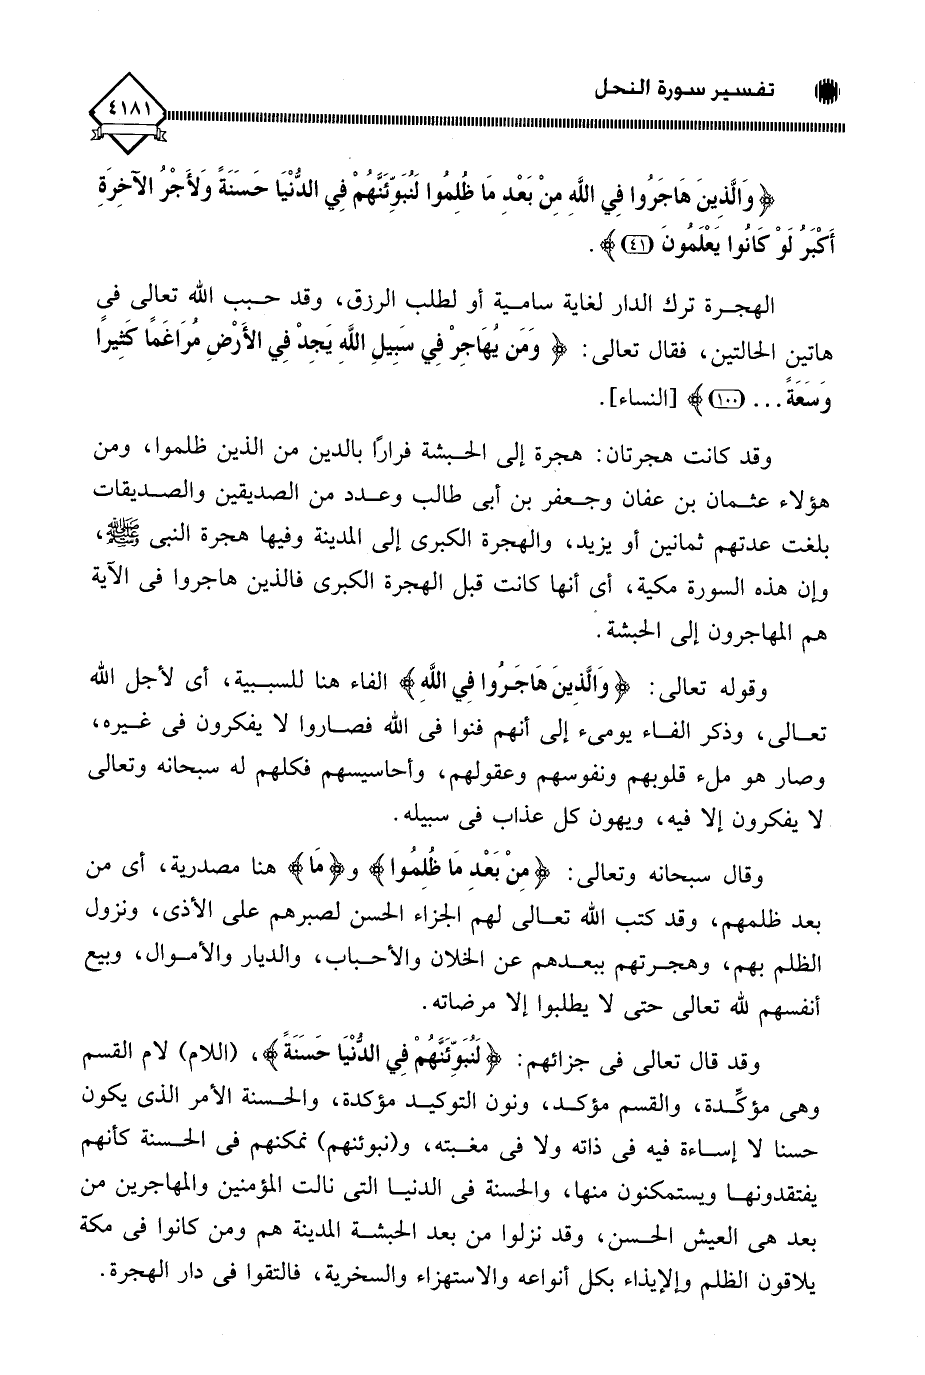 تفسير سورة النحل
٤١٨١
﴿ وَالَّذِينَ هَاجَرُوا فِي اللَّهِ مِنْ بَعْدِ مَا ظُلِمُوا لَنُبَوِّئَنَّهُمْ فِي الدُّنْيَا حَسَنَةً وَلَأَجْرُ الآخِرَةِ
أَكْبَرُ لَوْ كَانُوا يَعْلَمُونَ (٤١) ﴾ .
الهجرة ترك الدار لغاية سامية أو لطلب الرزق، وقد حبب الله تعالى فى
هاتين الحالتين، فقال تعالى: ﴿ وَمَن يُهَاجِرْ فِي سَبِيلِ اللَّهِ يَجِدْ فِي الأَرْضِ مُرَاغَمًا كَثِيرًا
وَسَعَةً ... (١٠٠) ﴾ [النساء].
وقد كانت هجرتان: هجرة إلى الحبشة فرارًا بالدين من الذين ظلموا، ومن
هؤلاء عثمان بن عفان وجعفر بن أبى طالب وعدد من الصديقين والصديقات
بلغت عدتهم ثمانين أو يزيد، والهجرة الكبرى إلى المدينة وفيها هجرة النبى ﷺ،
وإن هذه السورة مكية، أى أنها كانت قبل الهجرة الكبرى فالذين هاجروا فى الآية
هم المهاجرون إلى الحبشة.
وقوله تعالى: ﴿ وَالَّذِينَ هَاجَرُوا فِي اللَّهِ ﴾ الفاء هنا للسببية، أى لأجل الله
تعالى، وذكر الفاء يومىء إلى أنهم فنوا فى الله فصاروا لا يفكرون فى غيره،
وصار هو ملء قلوبهم ونفوسهم وعقولهم، وأحاسيسهم فكلهم له سبحانه وتعالى
لا يفكرون إلا فيه، ويهون كل عذاب فى سبيله.
وقال سبحانه وتعالى: ﴿ مِنْ بَعْدِ مَا ظُلِمُوا ﴾ و﴿ مَا ﴾ هنا مصدرية، أى من
بعد ظلمهم، وقد كتب الله تعالى لهم الجزاء الحسن لصبرهم على الأذى، ونزول
الظلم بهم، وهجرتهم ببعدهم عن الخلان والأحباب، والديار والأموال، وبيع
أنفسهم لله تعالى حتى لا يطلبوا إلا مرضاته.
وقد قال تعالى فى جزائهم: ﴿ لَنُبَوِّئَنَّهُمْ فِي الدُّنْيَا حَسَنَةً ﴾، (اللام) لام القسم
وهى مؤكِّدة، والقسم مؤكد، ونون التوكيد مؤكدة، والحسنة الأمر الذى يكون
حسنا لا إساءة فيه فى ذاته ولا فى مغبته، و(نبوئنهم) نمكنهم فى الحسنة كأنهم
يفتقدونها ويستمكنون منها، والحسنة فى الدنيا التى نالت المؤمنين والمهاجرين من
بعد هى العيش الحسن، وقد نزلوا من بعد الحبشة المدينة هم ومن كانوا فى مكة
يلاقون الظلم والإيذاء بكل أنواعه والاستهزاء والسخرية، فالتقوا فى دار الهجرة.